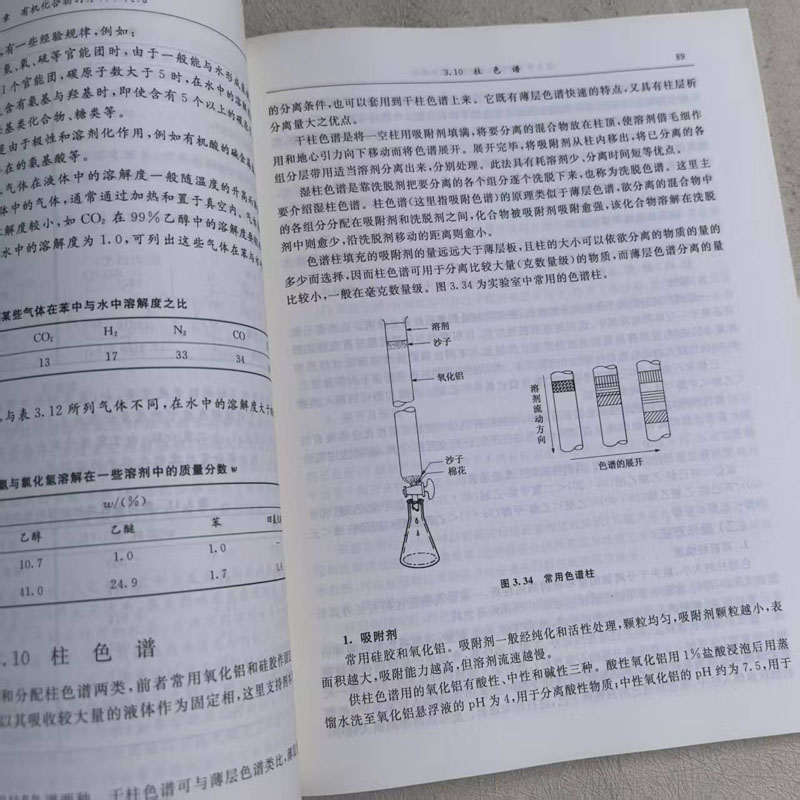 章 有机化合物的
有一些经验规律,例如:
氨、氮、硫等官能团时,由于一般能与水形成氢
个官能团,碳原子数大于5时,在水中的溶解
含有氨基与羟基时,即使含有5个以上的碳
羟基类化合物、糖类等。
是由于极性和溶剂化作用,例如有机酸的碱金
在的氨基酸等。
气体在液体中的溶解度一般随温度的升高
体中的气体,通常通过加热和置于真空内,气
解度较小,如CO₂在99%乙醇中的溶解度
水中的溶解度为1.0,可列出这些气体在苯与水
某些气体在苯中与水中溶解度之比
CO₂ H₂ N₂ CO
13 17 33 34
与表3.12所列气体不同,在水中的溶解度大于
氨与氯化氢溶解在一些溶剂中的质量分数w
w/(%)
乙醇 乙醚 苯
10.7 1.0 1.0
41.0 24.9 1.7
3.10 柱 色 谱
和分配柱色谱两类,前者常用氧化铝和硅胶作固定
以其吸收较大量的液体作为固定相,这里支持剂
干柱色谱可与薄层色谱类比,
3.10 柱 色 谱 89
的分离条件,也可以套用到干柱色谱上来。它既有薄层色谱快速的特点,又具有柱层析
分离量大之优点。
干柱色谱是将一空柱用吸附剂填满,将要分离的混合物放在柱顶,使溶剂借毛细作
用和地心引力向下移动而将色谱展开。展开完毕,将吸附剂从柱内移出,将已分离的各
组分层带用适当溶剂分离出来,分别处理。此法具有耗溶剂少、分离时间短等优点。
湿柱色谱是靠洗脱剂把要分离的各个组分逐个洗脱下来,也称为洗脱色谱。这里主
要介绍湿柱色谱。柱色谱(这里指吸附色谱)的原理类似于薄层色谱,欲分离的混合物中
的各组分分配在吸附剂和洗脱剂之间,化合物被吸附剂吸附愈强,该化合物溶解在洗脱
剂中则愈少,沿洗脱剂移动的距离则愈小。
色谱柱填充的吸附剂的量远远大于薄层板,且柱的大小可以依欲分离的物质的量的
多少而选择,因而柱色谱可用于分离比较大量(克数量级)的物质,而薄层色谱分离的量
比较小,一般在毫克数量级。图3.34为实验室中常用的色谱柱。
溶剂
沙子
氧化铝
沙子
棉花
溶剂流动方向
色谱的展开
图 3.34 常用色谱柱
1. 吸附剂
常用硅胶和氧化铝。吸附剂一般经纯化和活性处理,颗粒均匀,吸附剂颗粒越小,表
面积越大,吸附能力越高,但溶剂流速越慢。
供柱色谱用的氧化铝有酸性、中性和碱性三种。酸性氧化铝用1%盐酸浸泡后用蒸
馏水洗至氧化铝悬浮液的pH为4,用于分离酸性物质,中性氧化铝的pH约为7.5,用于